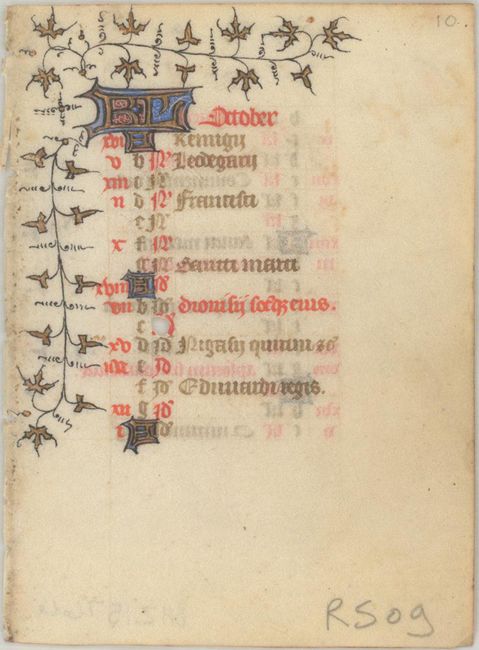 10.
KL October
xvi A Remigij
v b N Leodegarij
xiii c N
ii d N Francisci
e N
x f N
g N Sancti marci
xviii A Id
vii b Id dionisij socq eius.
c
xv d Id Nigasij quirini sc
iiii e Id
f Id Edwardi regis.
xii g Id
i A Id
RS09